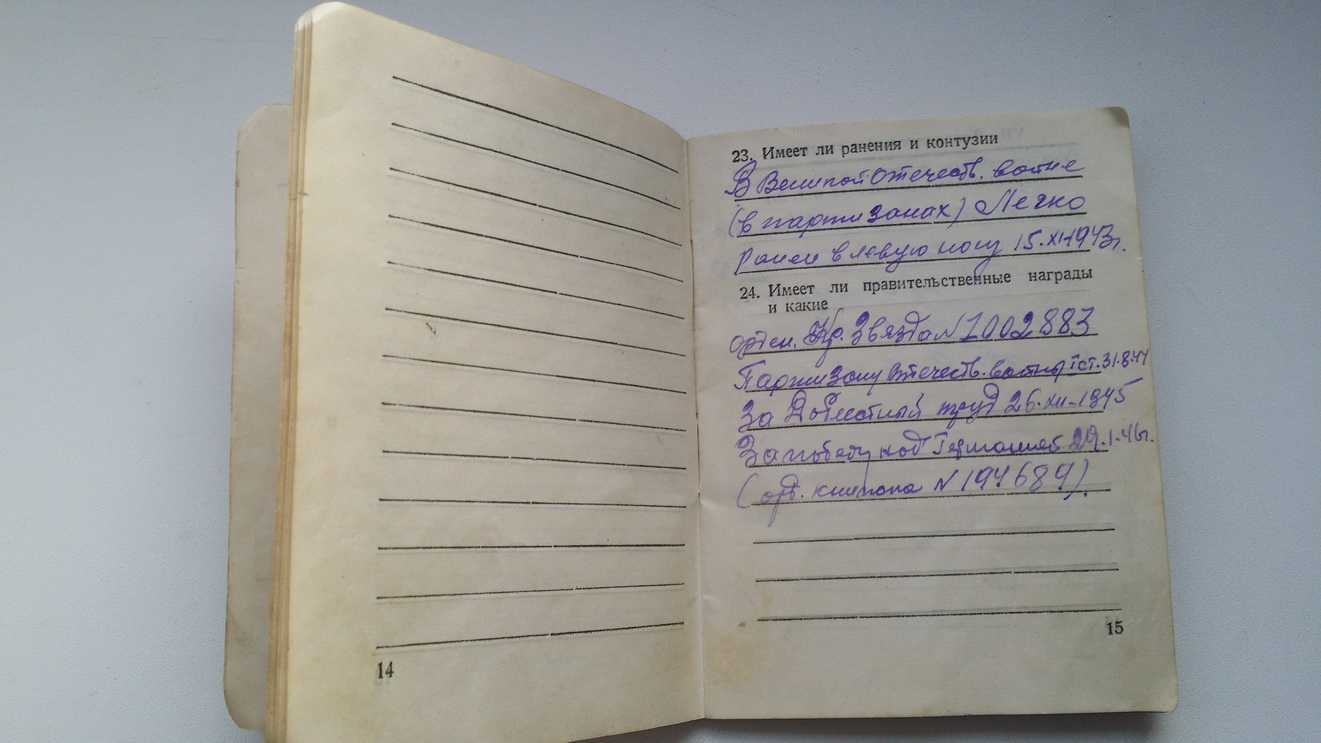 14
23. Имеет ли ранения и контузии
В Великой Отечеств. войне
(в партизанах) Легко
Ранен в левую ногу 15.XI-1943г.
24. Имеет ли правительственные награды
и какие
орден. Кр. Звезда N 1002883
Партизану Отечеств. войны I ст. 31.8.44
За Доблестный труд 26.XII-1945
За победу над Германией 29.1-46г.
(орд. книжка N 194689).
15